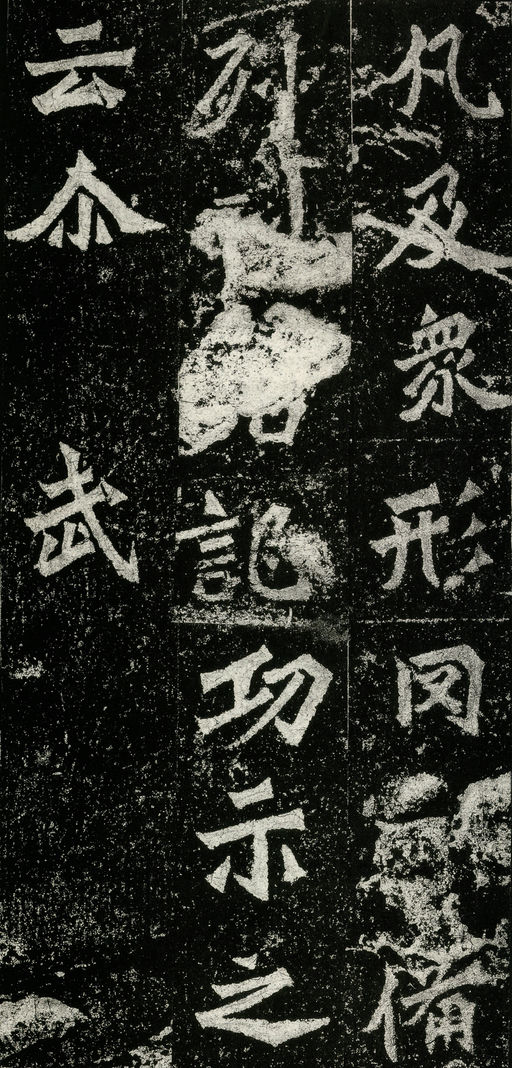 凡及衆形罔備
列石記功示之
云尒 武